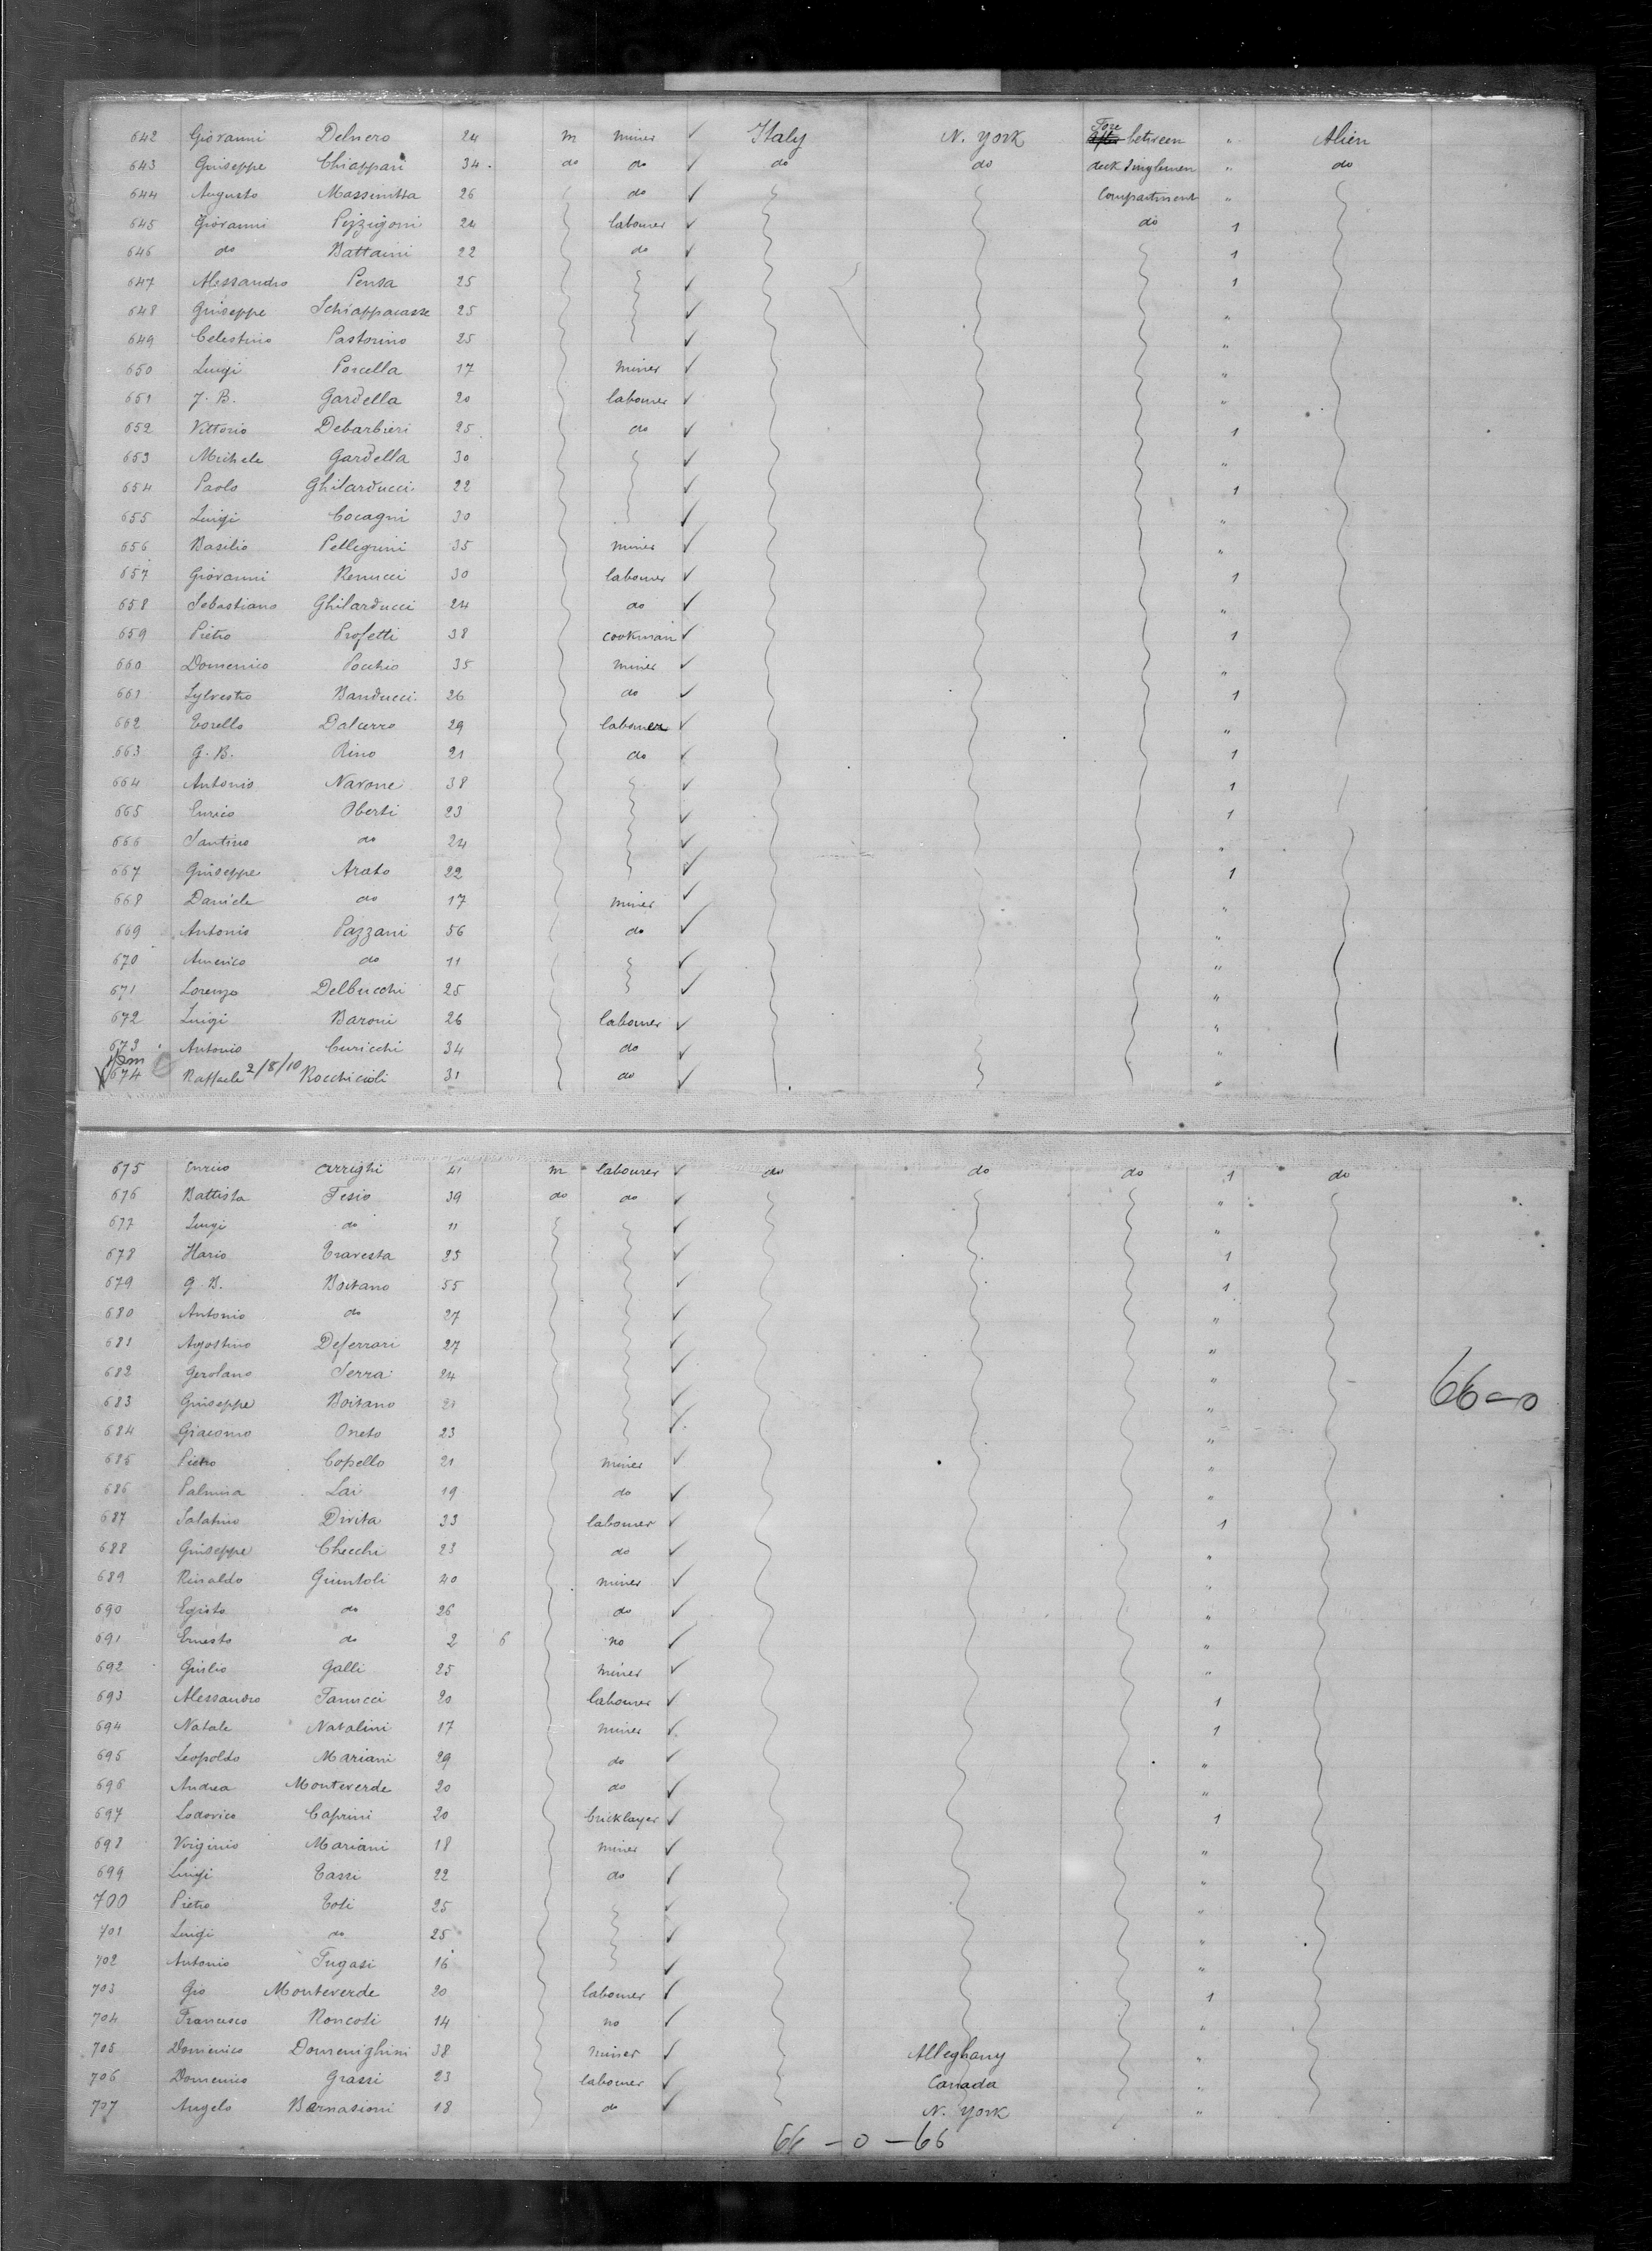 642 Giovanni Delnero 24 m miner ✓ Italy N. York Fore between " Alien
643 Guiseppe Chiappari 34. do do ✓ do do deck Singlemen " do
644 Augusto 26 do ✓ Compartment "
645 Giovanni Pizzigoni 24 labourer ✓ do 1
646 do Battaini 22 do ✓ 1
647 Alessandro Pensa 25 ✓ 1
648 Guiseppe Schiappacasse 25 ✓ "
649 Celestino Pastorino 25 ✓ "
650 Luigi Porcella 17 miner ✓ "
651 J. B. Gardella 20 labourer ✓ "
652 Vittorio Debarbieri 25 do ✓ 1
653 Michele Gardella 30 ✓ "
654 Paolo Ghilarducci 22 ✓ 1
655 Luigi Cocagni 30 ✓ "
656 Basilio Pellegrini 35 miner ✓ "
657 Giovanni Renucci 30 labourer ✓ 1
658 Sebastiano Ghilarducci 24 do ✓ "
659 Pietro Profetti 38 cookman ✓ 1
660 Domenico Pocchio 35 miner ✓ "
661 Sylvestro Banducci 26 do ✓ 1
662 Torello Dalcerro 29 labourer ✓ "
663 G. B. Rino 21 do ✓ 1
664 Antonio Narone 38 ✓ 1
665 Enrico Oberti 23 ✓ 1
666 Santino do 24 ✓ "
667 Guiseppe Arato 22 ✓ 1
668 Daniele do 17 miner ✓ "
669 Antonio Pazzani 56 do ✓ "
670 Americo do 11 ✓ "
671 Lorenzo Delbucchi 25 ✓ "
672 Luigi Baroni 26 labourer ✓ "
673 Antonio Curicchi 34 do ✓ "
674 Raffaele 2/8/10 Rocchicioli 31 do ✓ "
675 Enrico Arrighi 41 m labourer ✓ do do do 1 do
676 Battista Fesio 39 do do ✓ "
677 Luigi do 11 ✓ "
678 Mario Travesta 25 ✓ 1
679 G. B. Boitano 55 ✓ 1
680 Antonio do 27 ✓ "
681 Agostino Deferrari 27 ✓ "
682 Gerolano Serra 24 ✓ "
683 Guiseppe Boitano ✓ " 66-0
684 Giacomo Oneto 23 ✓ "
685 Pietro Copello 21 miner ✓ "
686 Palmira Lai 19 do ✓ "
687 Salatino Divita 33 labourer ✓ 1
688 Guiseppe Checchi 23 do ✓ "
689 Rinaldo Giuntoli 40 miner ✓ "
690 Egisto do 26 do ✓ "
691 Ernesto do 2 6 no ✓ "
692 Giulio Galli 25 miner ✓ "
693 Alessandro Fanucci 20 labourer ✓ 1
694 Natale Natalini 17 miner ✓ 1
695 Leopoldo Mariani 29 do ✓ "
696 Andrea Monteverde 20 do ✓ "
697 Lodovico Caprini 20 bricklayer ✓ 1
698 Virginio Mariani 18 miner ✓ "
699 Luigi Tassi 22 do ✓ "
700 Pietro Toti 25 ✓ "
701 Luigi do 25 ✓ "
702 Antonio Fugasi 16 ✓ "
703 Gio Monteverde 20 labourer ✓ 1
704 Francesco Roncoti 14 no ✓ "
705 Domenico Domenighini 38 miner ✓ Alleghany "
706 Domenico Grassi 23 labourer ✓ Canada "
707 Angelo Bernasioni 18 do ✓ N. York "
66 - 0 - 66